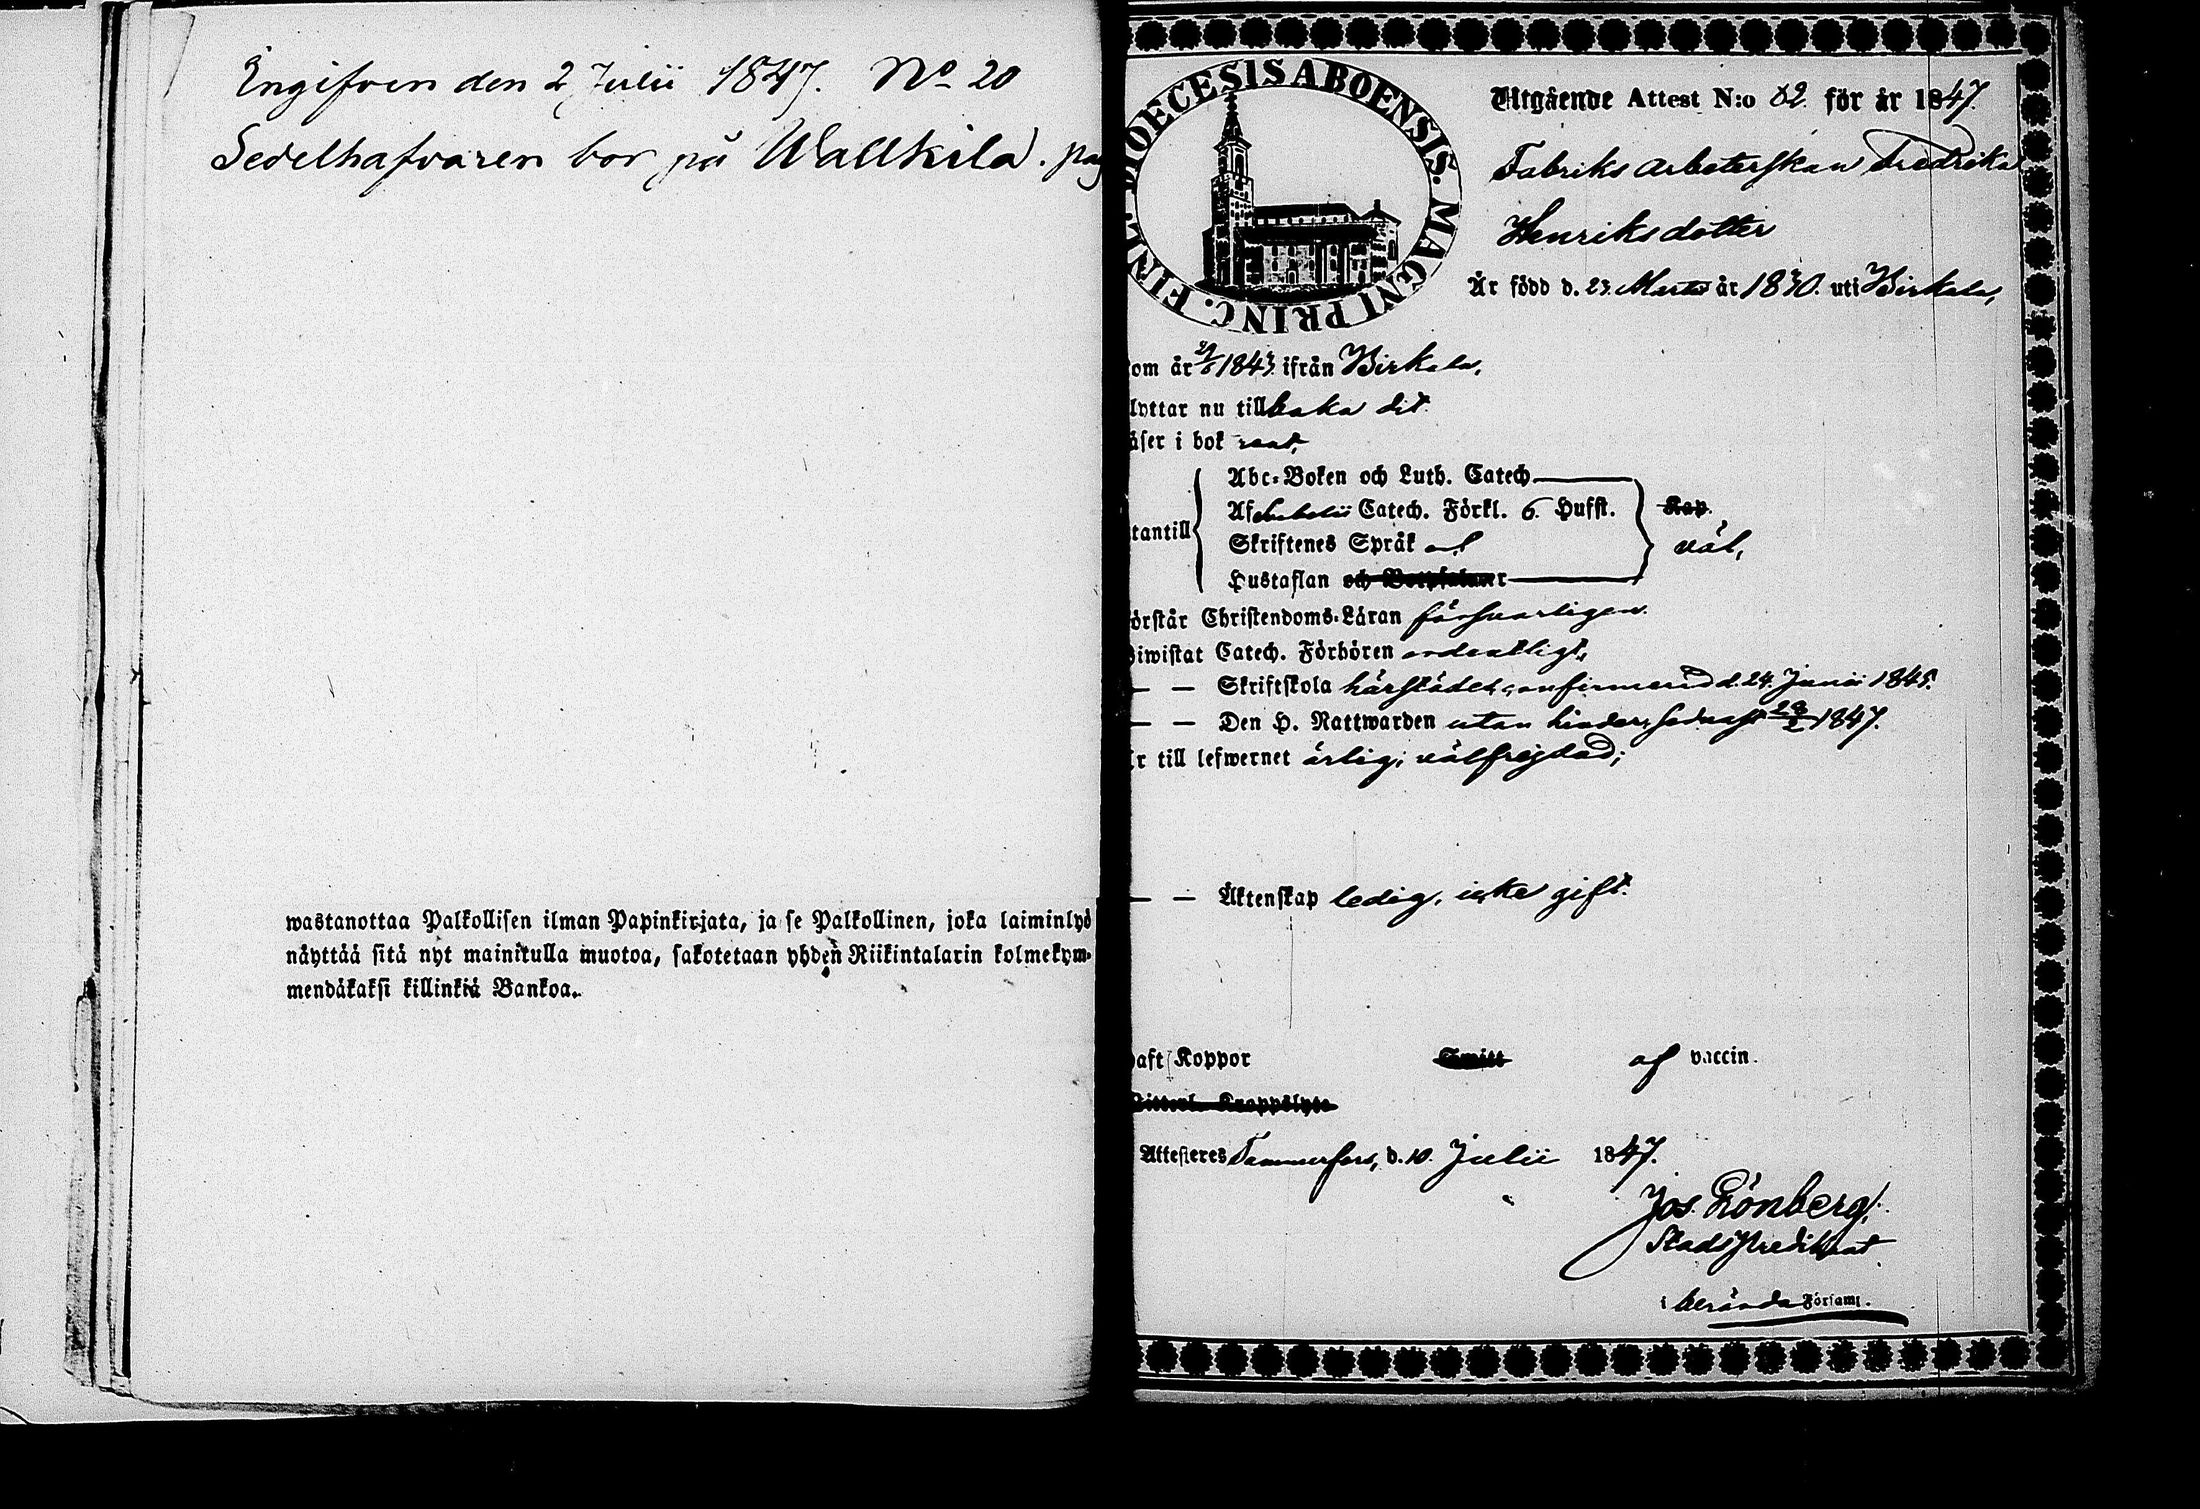 Engifven den 2 Julii 1847. No 20
Sedelhafvaren bor på Wallkila. pag
wastanottaa Palkollisen ilman Papinkirjata, ja se Palkollinen, joka laiminlyö
näyttää sitä nyt mainitulla muotoa, sakotetaan yhden Riikintalarin kolmekym-
mendäkaksi killinkiä Bankoa.
FINL. DIOECESIS ABOENSIS. MAGNI PRINC.
Utgående Attest N:o 82 för år 1847.
Fabriks arbeterskan Fredrika
Henriksdotter
Är född d. 23 Martii år 1830. uti Birkala,
om år 1843 ifrån Birkala,
lyttar nu tillbaka dit.
äser i bok rent,
Abc-Boken och Luth. Catech
Af Catech. Förkl. 6. Hufst. Kap.
tantill Skriftenes Språk ant väl,
Hustaflan och Botpsalmer
örstår Christendoms-Läran försvarligen.
iwistat Catech. Förhören ordentligt,
— — Skriftskola härstädes, confirmerad d. 24. Junii 1845.
— — Den H. Nattwarden utan hinder, sednast 28/2 1847.
r till lefwernet ärlig, välfrejdad;
— — Äktenskap ledig, icke gift.
aft Koppor Smitt af vaccin.
Attesteres Tammerfors, d. 10 Julii 1847.
Jos. Grönberg.
Stadspredikant
i berörda Församl.